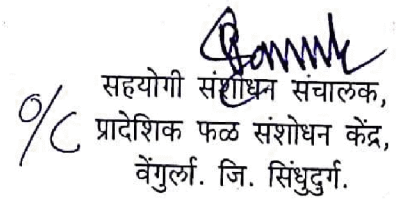 सहयोगी संशोधन संचालक,
O/C प्रादेशिक फळ संशोधन केंद्र,
वेंगुर्ला. जि. सिंधुदुर्ग.